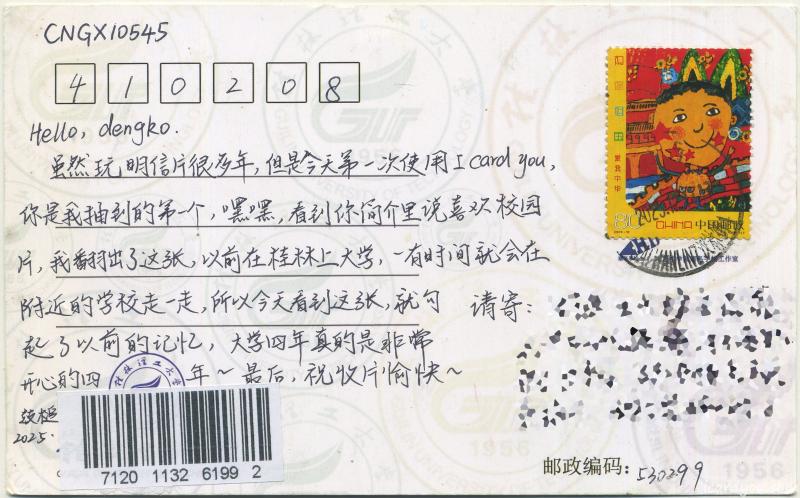 CNGX10545
410208
Hello, dengko.
虽然玩明信片很多年,但是今天第一次使用I card you,
你是我抽到的第一个,嘿嘿,看到你简介里说喜欢校园
片,我翻出了这张,以前在桂林上大学,一有时间就会在
附近的学校走一走,所以今天看到这张,就勾
起了以前的记忆,大学四年真的是非常
开心的四 年~最后,祝收片愉快~
2025.
请寄:
7120 1132 6199 2
邮政编码:530299
80 CHINA 中国邮政
桂林理工大学
1956
1956